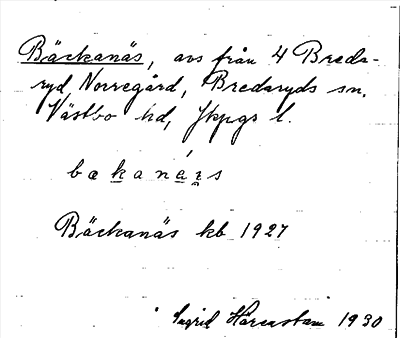 Bäckanäs, avs från 4 Breda-
ryd Norregård, Bredaryds sn.
Västbo hd, Jkpgs l.
Bäckanäs kb 1927
Ingrid 1930